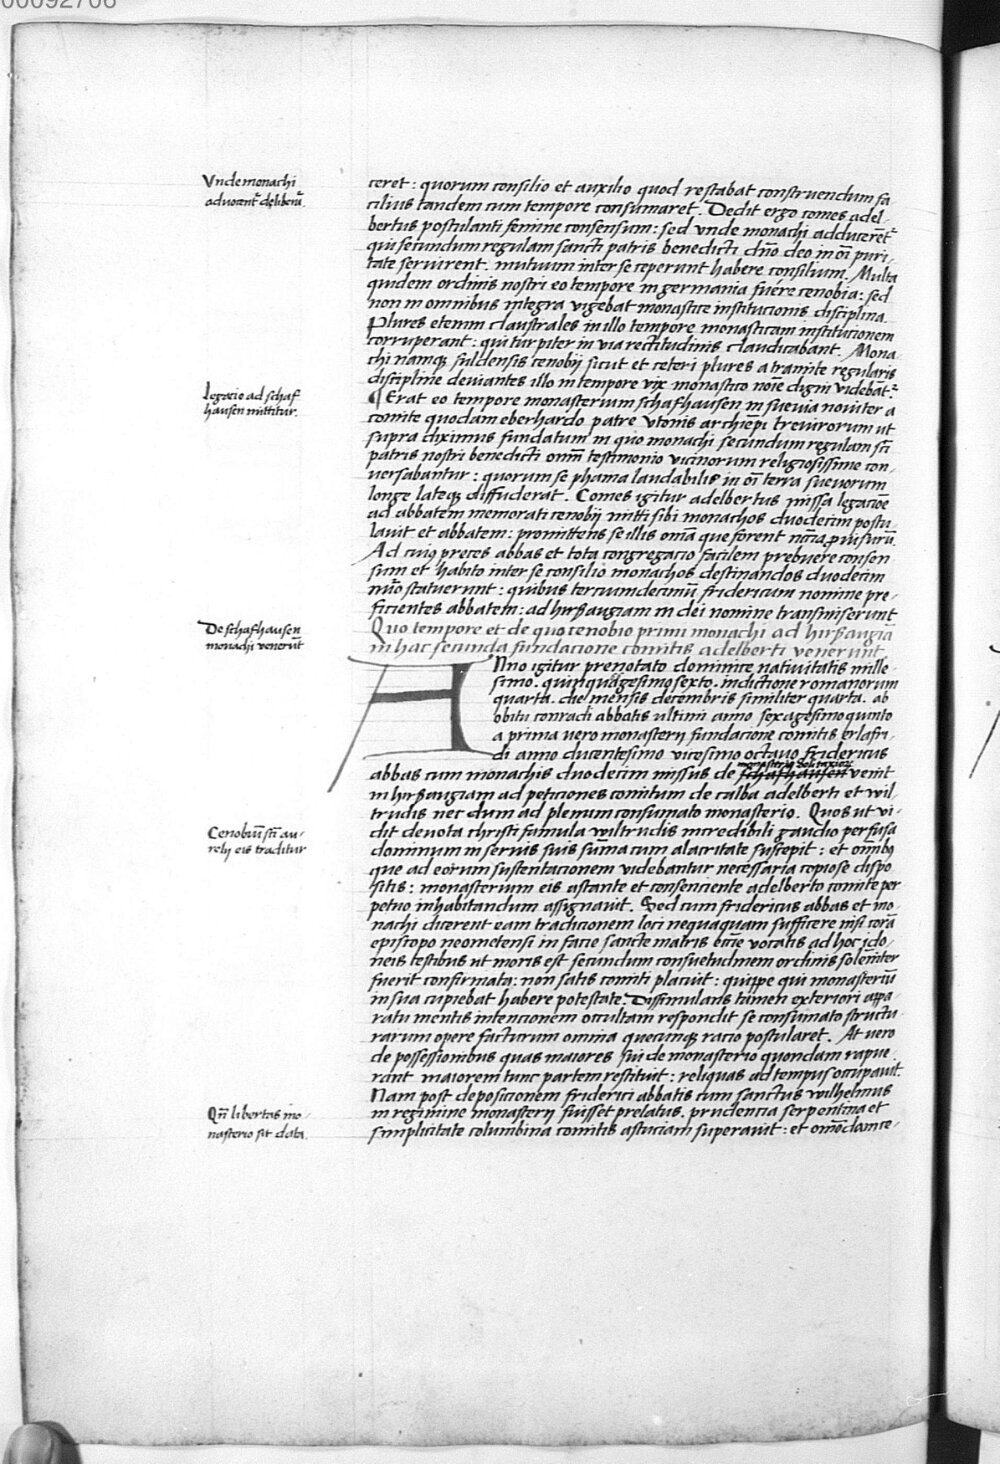 00092706
Vnde monachi
aducent᷑ deliberũ.
ceret : quorum consilio et auxilio quod restabat construendum fa
cilius tandem cum tempore consumaret. Dedit ergo comes adel-
bertus postulanti femine consensum : sed vnde monachi aducerẽt᷑
qui secundum regulam sancti patris benedicti dño deo in oĩ puri-
tate seruirent. mutuum inter se ceperunt habere consilium. Multa
quidem ordinis nostri eo tempore in germania fuére cenobia : sed
non in omnibus integra vigebat monastice institucionis disciplina.
Plures etenim claustrales in illo tempore monasticam institucionem
corruperant : qui turpiter in via rectitudinis claudicabant. Mona-
chi namqꝫ fuldensis cenobij sicut et ceteri plures a tramite regularis
discipline deuiantes illo in tempore vix monastico noĩe digni videbãt᷑
Legacio ad schaf
hausen mittitur.
¶ Erat eo tempore monasterium schafhausen in sueuia nouiter a
comite quodam eberhardo patre vtonis archiep̃i treuirorum ut
supra diximus fundatum in quo monachi secundum regulam sc̃i
patris nostri benedicti om̃ testimonio vicinorum religiosissime con-
uersabantur : quorum se phama laudabilis in oĩ terra sueuorum
longe lateqꝫ diffuderat. Comes igitur adelbertus missa legacione
ad abbatem memorati cenobij mitti sibi monachos duodecim postu-
lauit et abbatem : promittens se illis om̃ia que forent nc̃cia ꝓuisurũ.
Ad cuiꝰ preces abbas et tota congregacio facilem prebuere consen
sum et habito inter se consilio monachos destinandos duodecim
mũo statuerunt : quibus terciumdecimũ fridericum nomine pre-
ficientes abbatem : ad hirßaugiam in dei nomine transmiserunt
De schafhausen
monachi venerũt
Quo tempore et de quo cenobio primi monachi ad hirßaugiã
in hac secunda fundacione comitis adelberti venerunt.
Anno igitur prenotato dominice natiuitatis mille
simo. quinquagesimo sexto. indictione romanorum
quarta. die mensis decembris similiter quarta. ab
obitu conradi abbatis vltimi anno sexagesimo quinto
a prima vero monasterij fundacione comitis erlafri-
di anno ducentesimo vicesimo octauo fridericus
abbas cum monachis duodecim missus de schafhausen venit
in hirßaugiam ad peticiones comitum de calba adelberti et wil-
trudis nec dum ad plenum consumato monasterio. Quos ut vi-
dit deuota christi famula wiltrudis incredibili gaudio perfusa
Cenobiũ sc̃i au-
relij eis traditur
dominum in seruis suis suma cum alacritate suscepit : et omnibꝰ
que ad eorum sustentacionem videbantur necessaria copiose dispo
sitis : monasterium eis astante et consenciente adelberto comite per
petuo inhabitandum assignauit. Sed cum fridericus abbas et mo-
nachi dicerent eam tradicionem loci nequaquam sufficere nisi corã
episcopo neometensi in facie sancte matris ecc̃ie vocatis ad hoc ido-
neis testibus ut moris est secundum consuetudinem ordinis solẽniter
fuerit confirmata : non satis comiti placuit : quippe qui monasteriũ
in sua cupiebat habere potestate. Dissimulans tamen exteriori appa-
ratu mentis intencionem occultam respondit se consumato structu
rarum opere facturum omnia quecunqꝫ racio postularet. At vero
de possessionibus quas maiores sui de monasterio quondam rapue-
rant maiorem tunc partem restituit : reliquas ad tempus occupauit.
Nam post deposicionem friderici abbatis cum sanctus wilhelmus
Qñ libertas mo-
nasterio sit data.
in regimine monasterij fuisset prelatus. prudencia serpentina et
simplicitate columbina comitis astuciam superauit : et om̃odam ce-